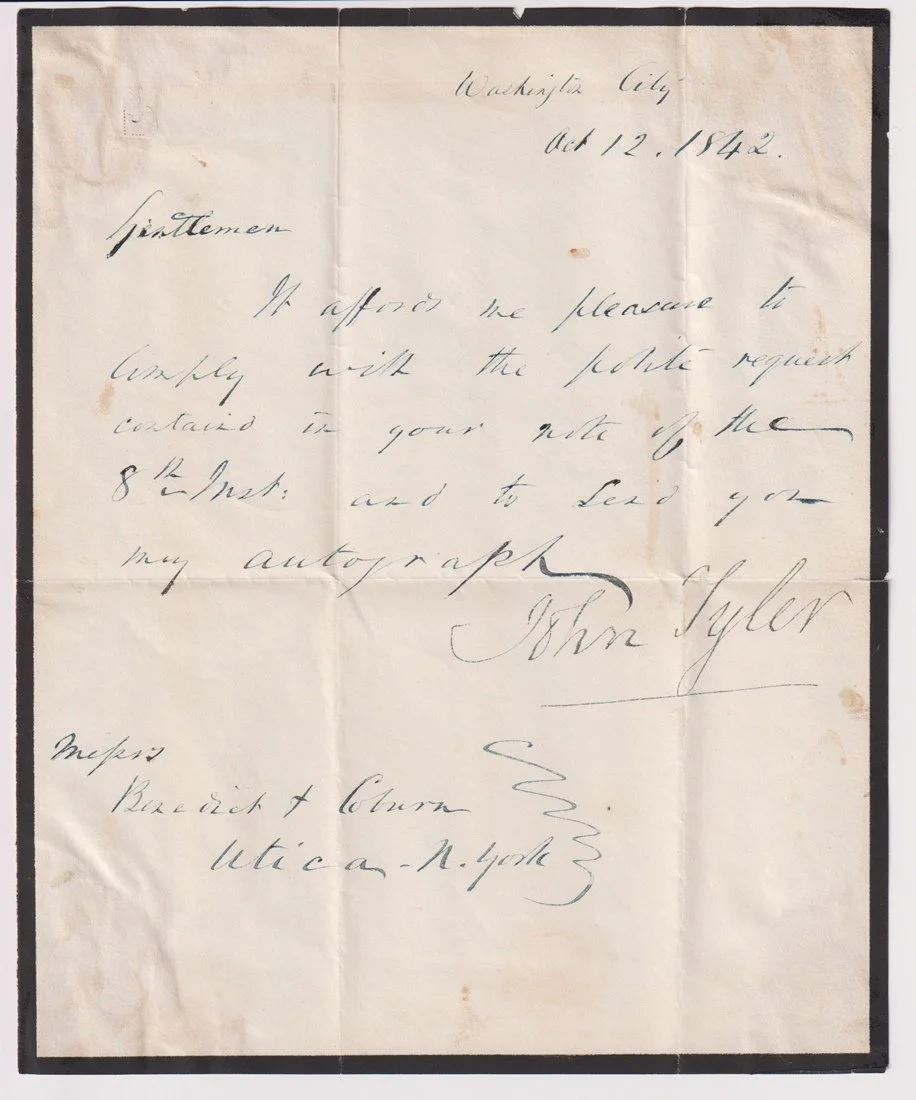 Washington City
Oct 12. 1842.
Gentlemen
It affords me pleasure to
comply with the polite request
containd in your note of the
8th Inst: and to send you
my autograph
John Tyler
Messrs
Benedict & Coburn
Utica - N. York